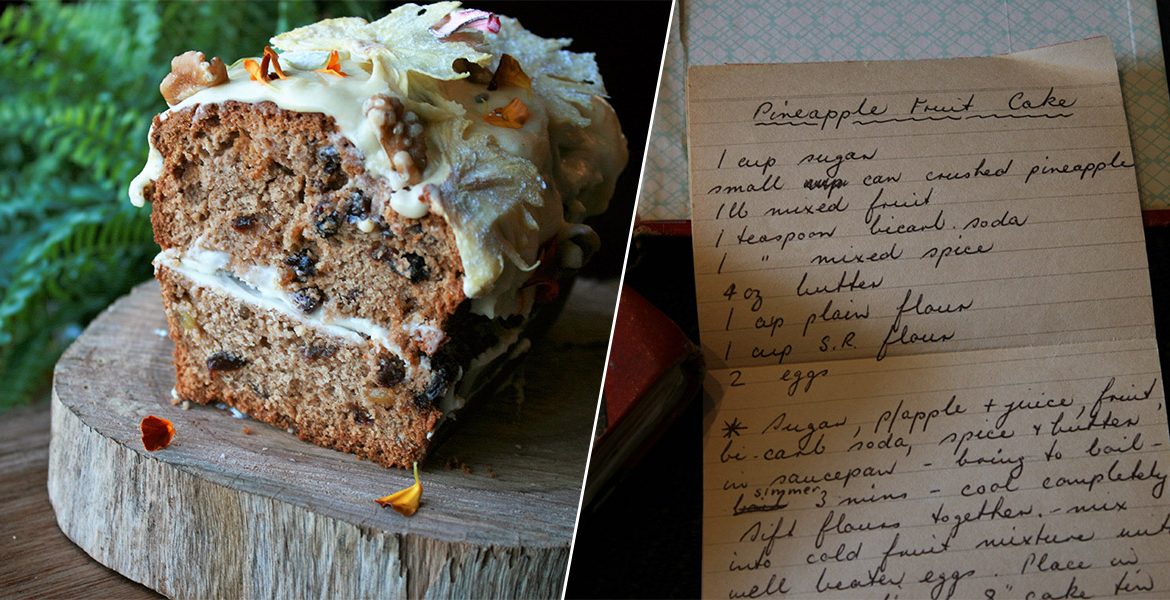 Pineapple Fruit Cake
1 cup sugar
small can crushed pineapple
1 lb mixed fruit
1 teaspoon bicarb. soda
1 " mixed spice
4 oz butter
1 cup plain flour
1 cup S.R. flour
2 eggs
* Sugar, p/apple + juice, fruit,
bi-carb soda, spice & butter
in saucepan - bring to boil -
simmer 3 mins - cool completely
Sift flours together. - mix
into cold fruit mixture with
well beaten eggs. Place in
8" cake tin